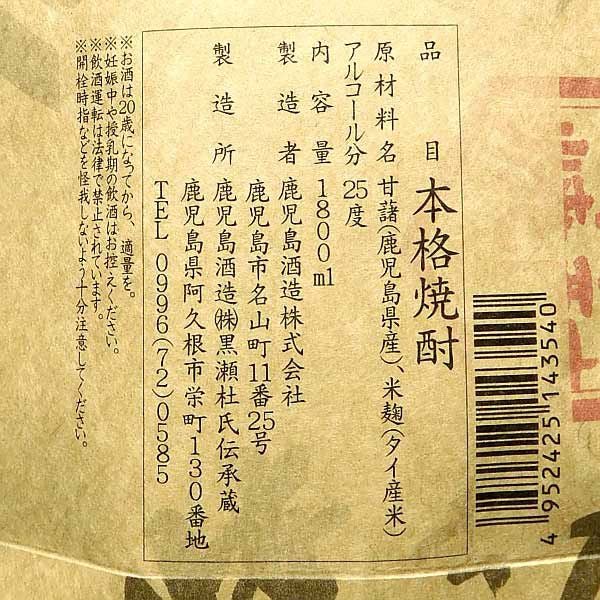 品目 本格焼酎
原材料名 甘藷(鹿児島県産)、米麹(タイ産米)
アルコール分 25度
内容量 1800ml
製造者 鹿児島酒造株式会社
鹿児島市名山町11番25号
製造所 鹿児島酒造㈱黒瀬杜氏伝承蔵
鹿児島県阿久根市栄町130番地
TEL 0996(72)0585
※お酒は20歳になってから、適量を。
※妊娠中や授乳期の飲酒はお控えください。
※飲酒運転は法律で禁止されています。
※開栓時指などを怪我しないよう十分注意してください。
4 952425 143540